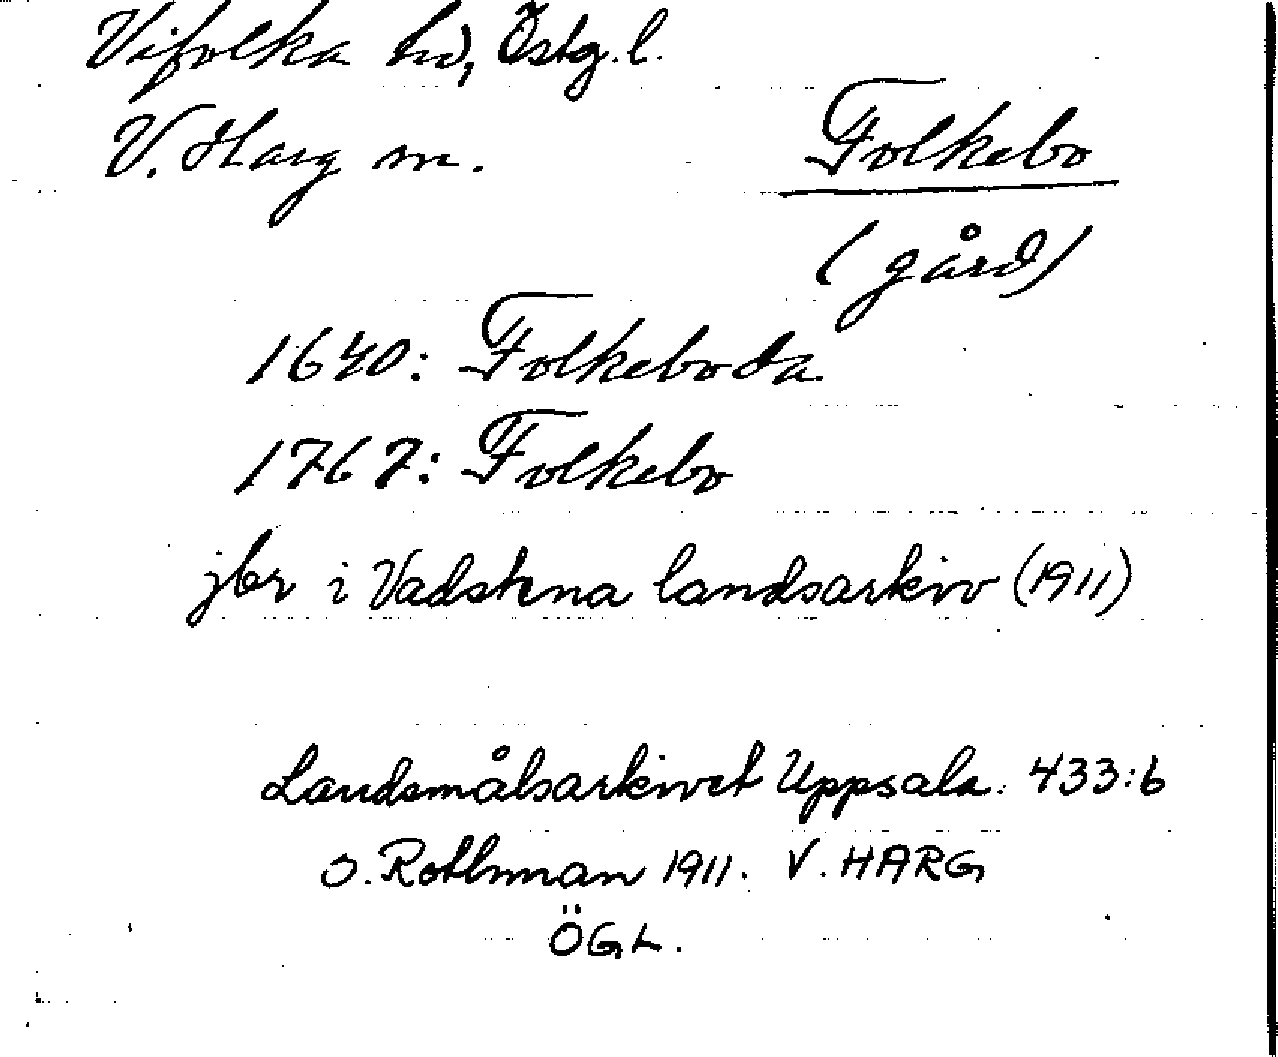 Vifolka hd, Östg. l.
V. Harg sn.
Folkebo
(gård)
1640: Folkeboda
1767: Folkebo
jbr i Vadstena landsarkiv (1911)
Landsmålsarkivet Uppsala. 433:6
S. Rothman 1911. V. HARG
ÖGL.